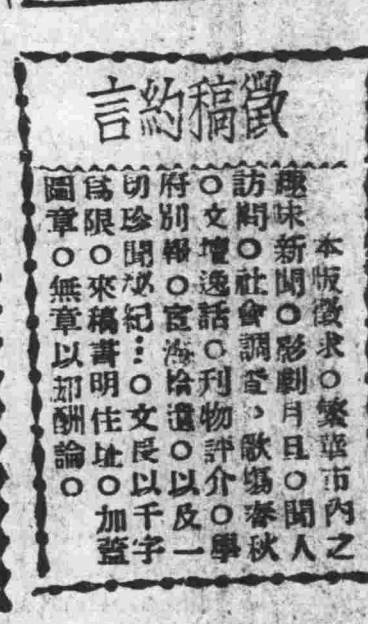 徵稿約言
本版徵求○繁華市內之
趣味新聞○影劇月旦○聞人
訪問○社會調查、歌塲春秋
○文壇逸話○刊物評介○學
府別報○宦海拾遺○以及一
切珍聞泌紀…○文長以千字
爲限○來稿書明住址○加蓋
圖章○無章以却酬論○